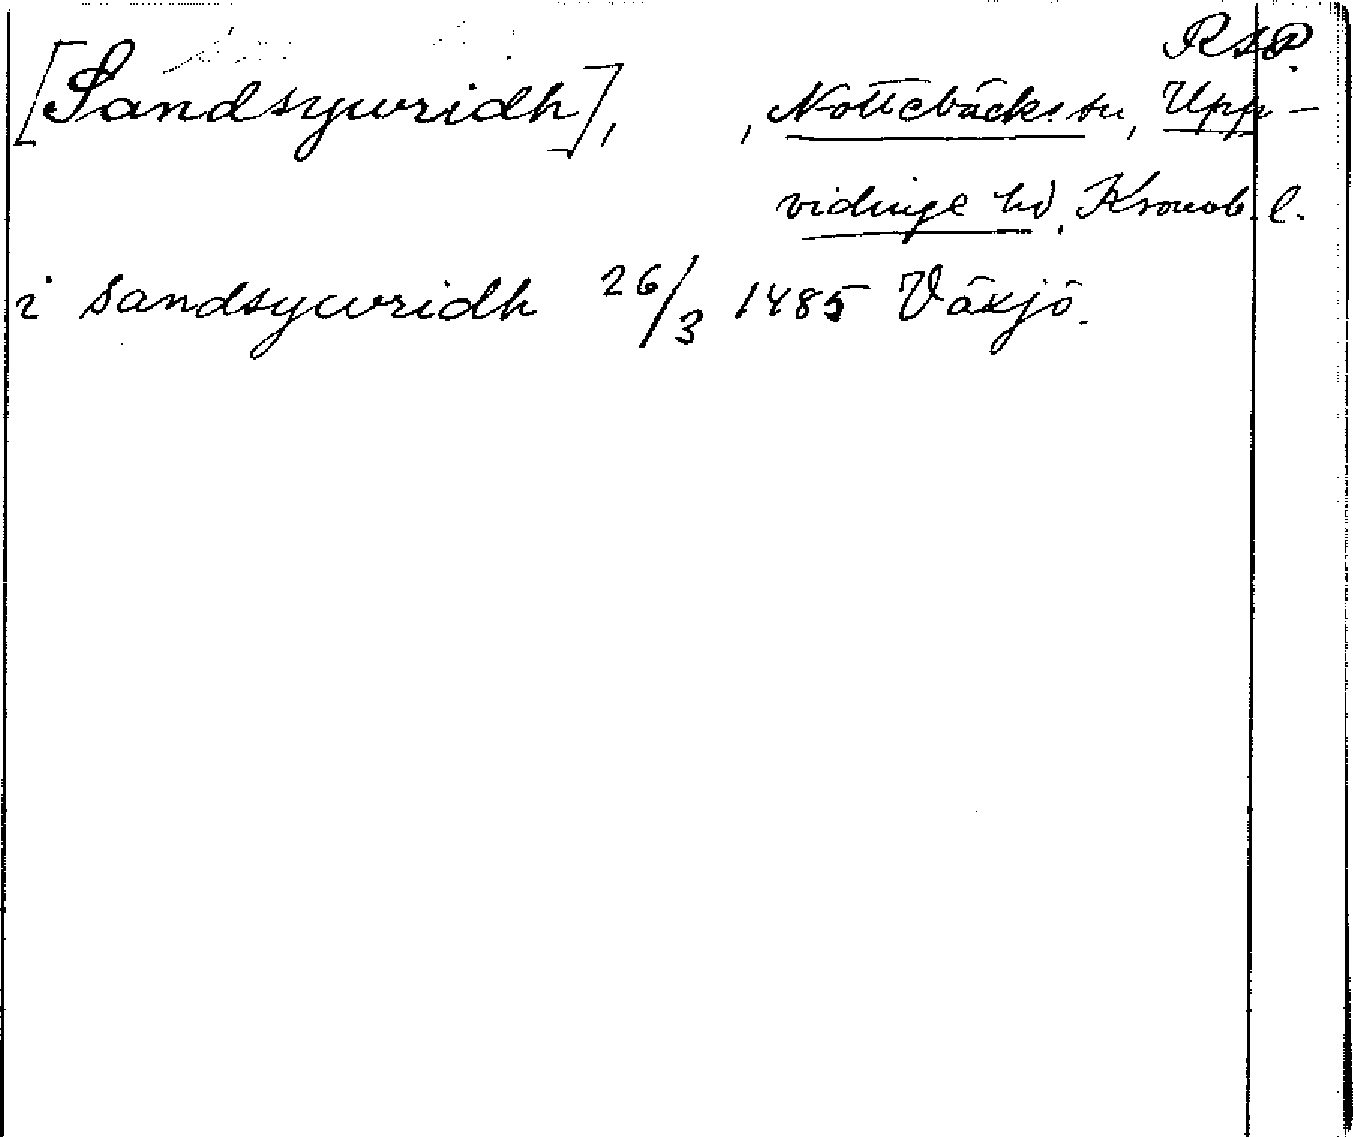 RAP.
[Sandsywridh], , Nottebäcks sn, Upp-
vidinge hd, Kronob. l.
i sandsywridh 26/3 1485 Växjö.